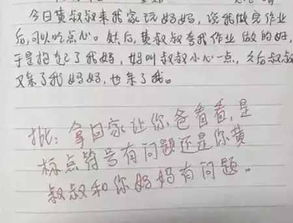 今日黄叔叔来我家玩妈妈,说我做完作业
后,可以吃点心。然后,黄叔叔夸我作业做的好,
于是抱起了我妈,妈叫叔叔小心一点,之后叔叔
又亲了我妈妈,也亲了我。
批:拿回家让你爸看看,是
标点符号有问题还是你黄
叔叔和你妈妈有问题。